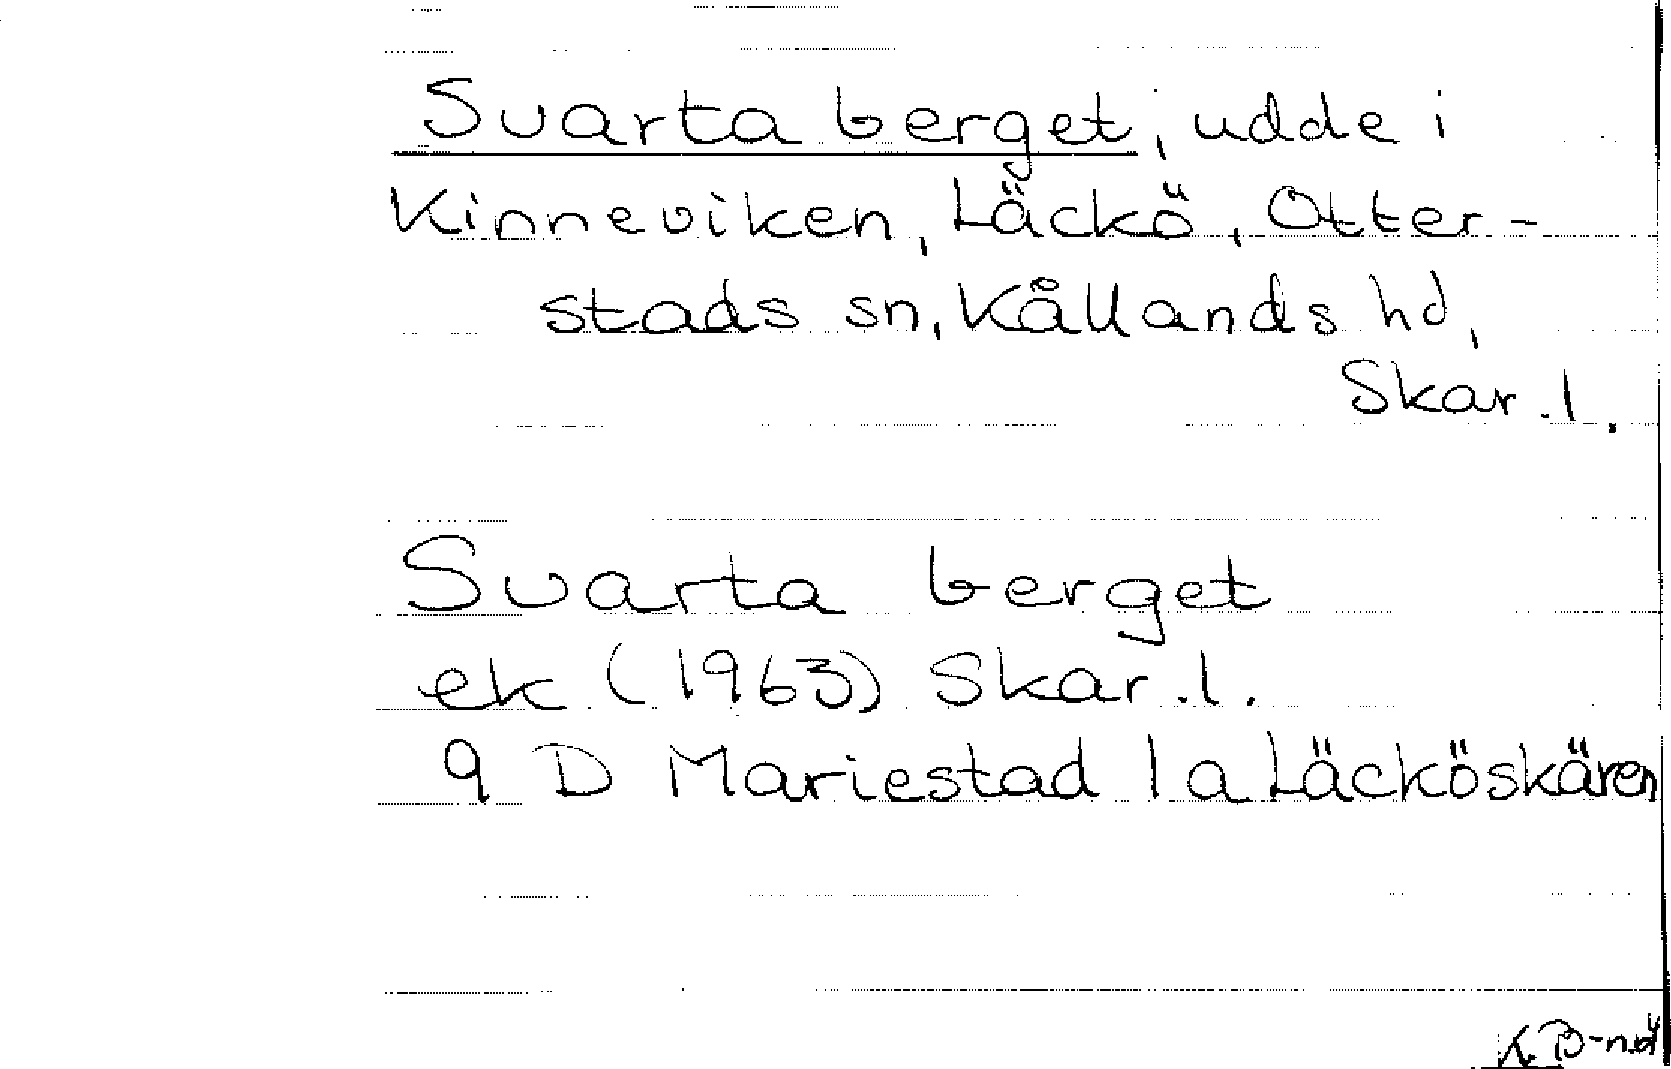 Svarta berget, udde i
Kinneviken, Läckö, Otter-
stads sn, Kållands hd,
Skar. l.
Svarta berget
ek (1963) Skar. l.
9 D Mariestad 1 a Läcköskären